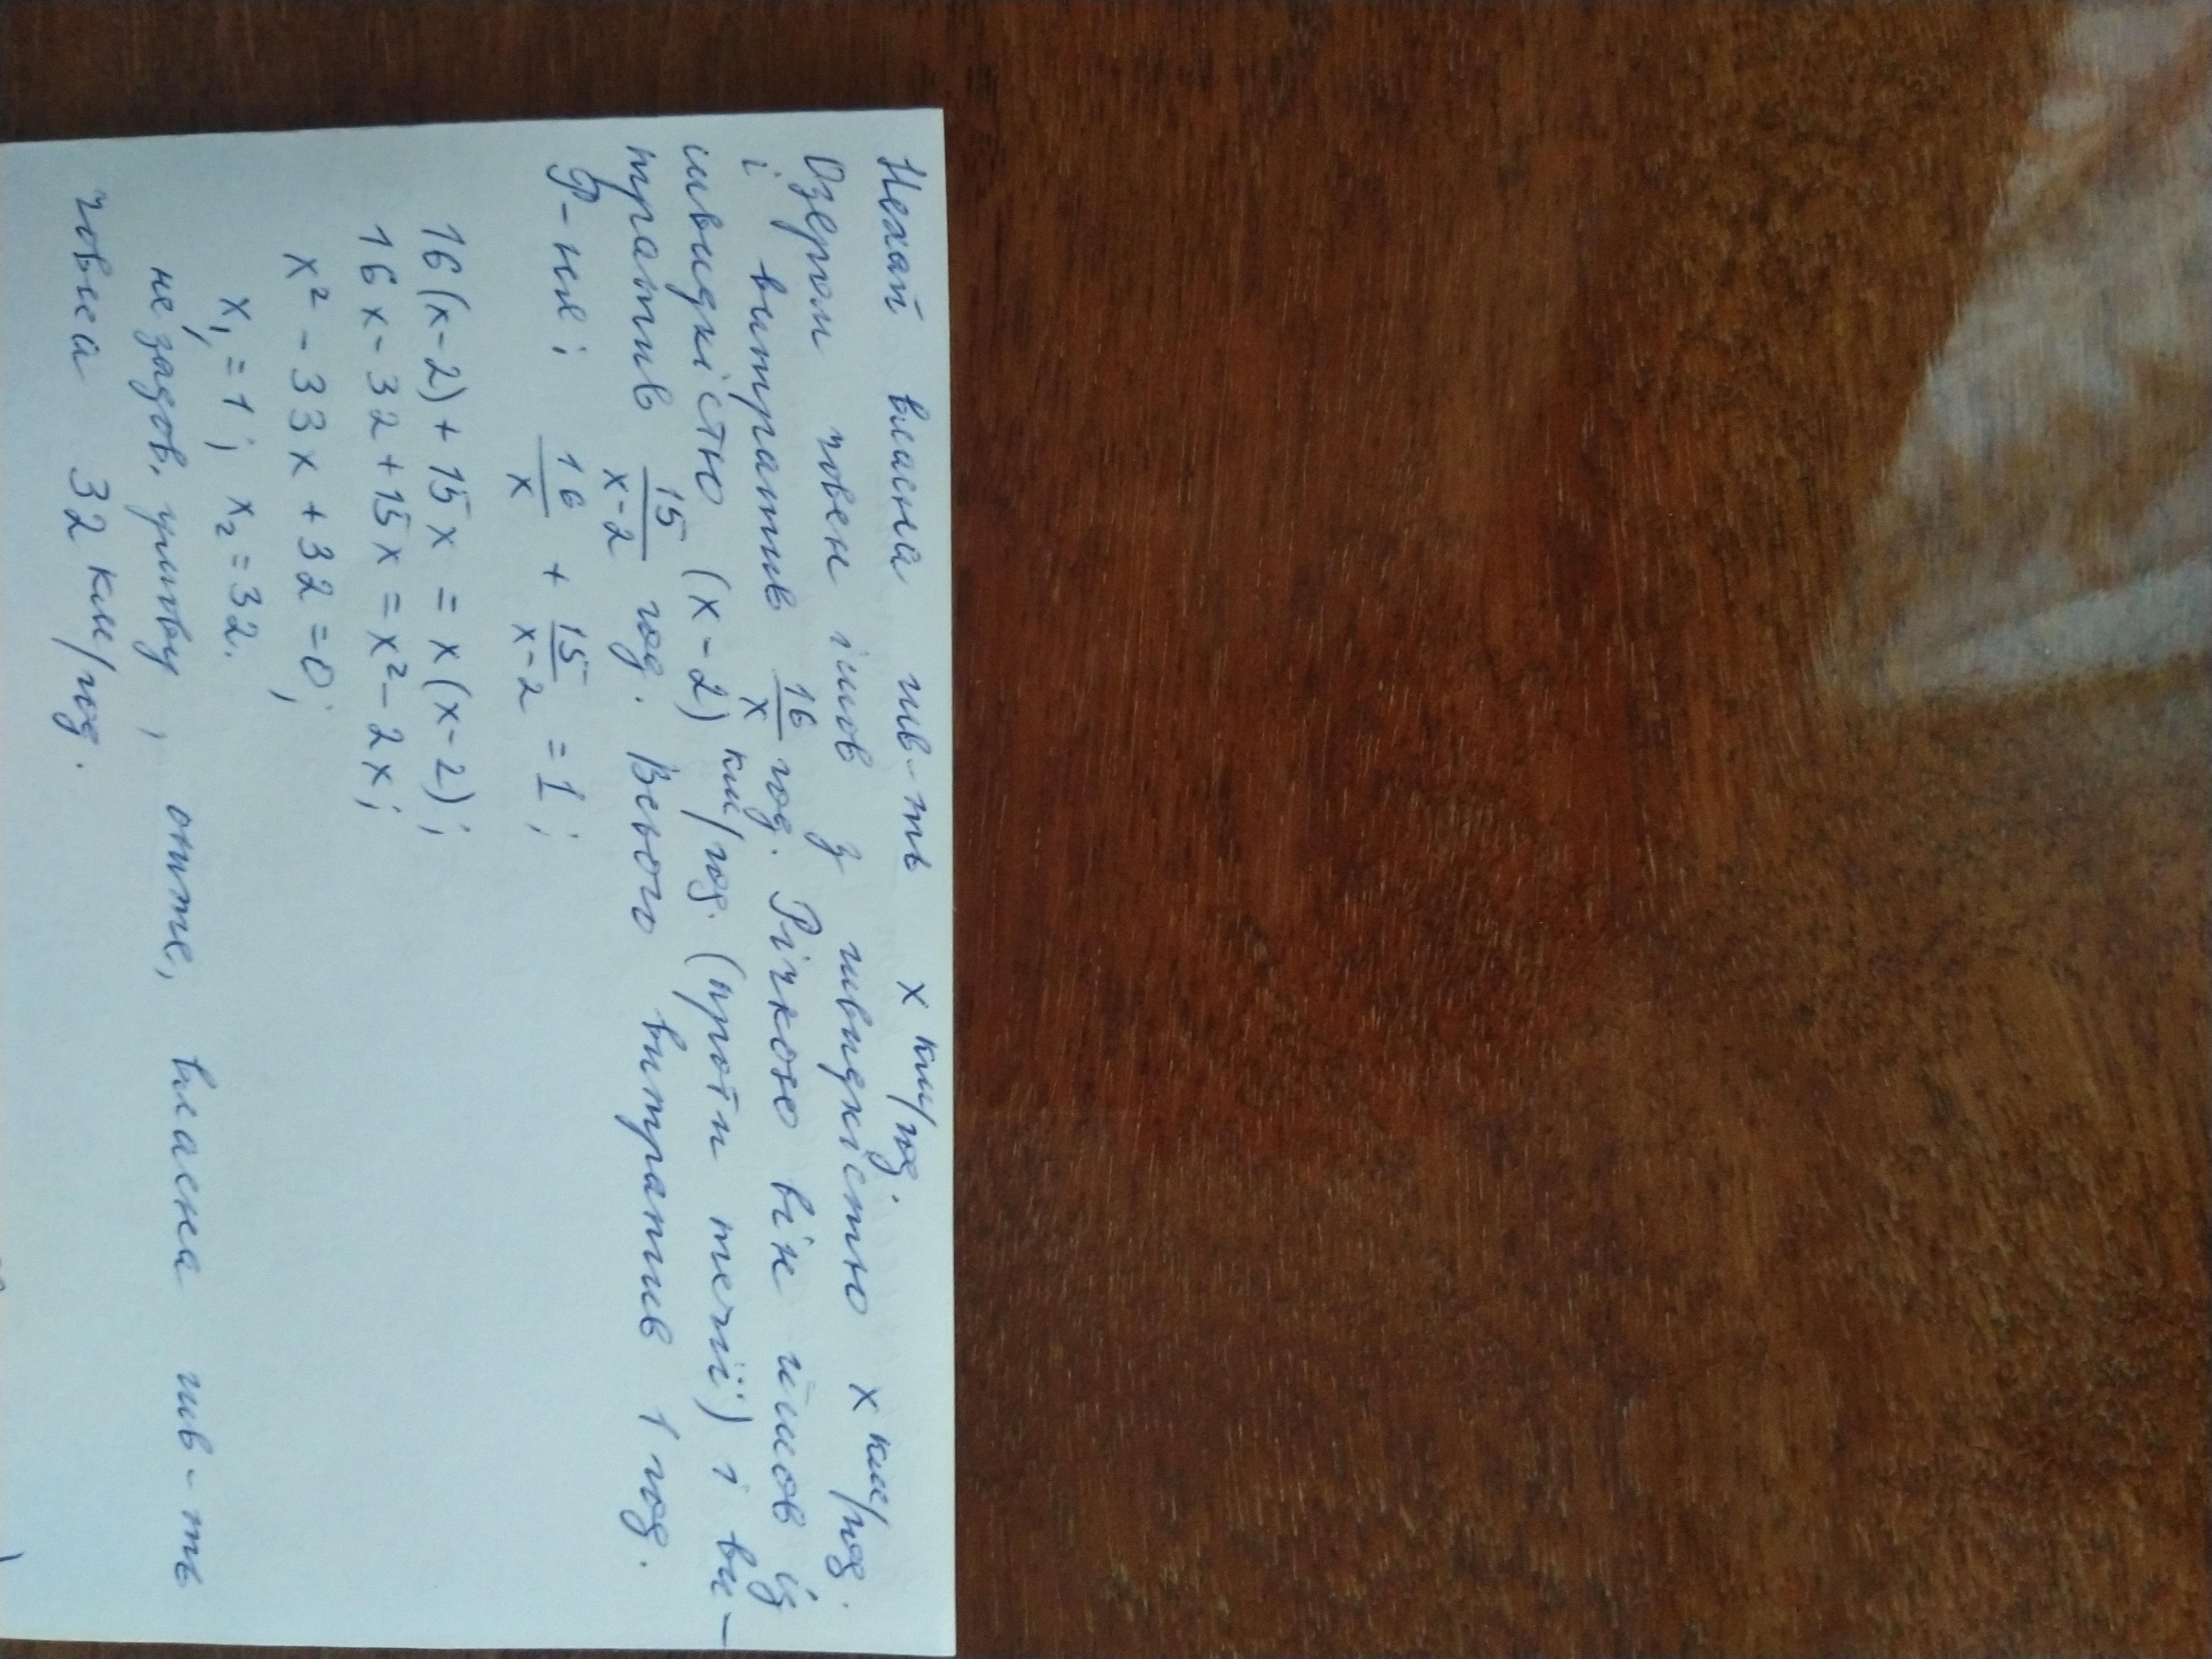 Нехай власна шв-ть x км/год.
Озером човен ішов з швидкістю x км/год.
і витратив 16/x год. Річкою він ішов із
швидкістю (x-2) км/год. (проти течії) і ви-
тратив 15/x-2 год. Всього витратив 1 год.
Р-ня: 16/x + 15/x-2 = 1;
16(x-2)+15x = x(x-2);
16x-32+15x = x²-2x;
x²-33x+32=0;
x₁=1; x₂=32.
не задов. умову, отже, власна шв-ть
човна 32 км/год.